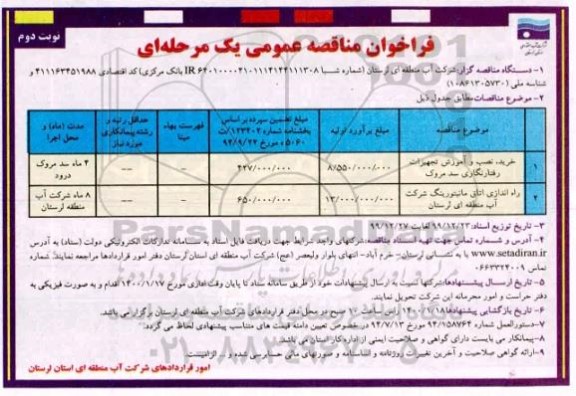 نوبت دوم
فراخوان مناقصه عمومی یک مرحله‌ای
۱- دستگاه مناقصه گزار: شرکت آب منطقه ای لرستان (شماره شبا IR ۶۴۰۱۰۰۰۰۴۱۰۱۱۱۴۱۴۴۱۱۱۳۰۸ بانک مرکزی) کد اقتصادی ۴۱۱۱۶۳۴۵۱۹۸۸ و
شناسه ملی (۱۰۸۶۱۳۰۵۷۳۰)
۲- موضوع مناقصات: مطابق جدول ذیل
موضوع مناقصه | مبلغ برآورد اولیه | مبلغ تضمین سپرده بر اساس بخشنامه شماره ۱۲۳۴۰۲/ت ۵۰۶۰ مورخ ۹۴/۹/۲۲ | فهرست بهاء مبنا | حداقل رتبه و رشته پیمانکاری مورد نیاز | مدت (ماه) و محل اجرا
۱ | خرید، نصب و آموزش تجهیزات رفتارنگاری سد مروک | ۸/۵۵۰/۰۰۰/۰۰۰ | ۴۲۷/۰۰۰/۰۰۰ | -- | -- | ۴ ماه سد مروک درود
۲ | راه اندازی اتاق مانیتورینگ شرکت آب منطقه ای لرستان | ۱۳/۰۰۰/۰۰۰/۰۰۰ | ۶۵۰/۰۰۰/۰۰۰ | -- | -- | ۸ ماه شرکت آب منطقه لرستان
۳- تاریخ توزیع اسناد: ۹۹/۱۲/۲۳ لغایت ۹۹/۱۲/۲۷
۴- آدرس و شماره تماس جهت تهیه اسناد مناقصه: شرکتهای واجد شرایط جهت دریافت فایل اسناد به سامانه تدارکات الکترونیکی دولت (ستاد) به آدرس
www.setadiran.ir یا به نشانی لرستان- خرم آباد- انتهای بلوار ولیعصر (عج) شرکت آب منطقه ای لرستان دفتر امور قراردادها مراجعه نمایند. شماره
تماس ۰۶۶۳۳۲۴۰۰۹
۵- تاریخ ارسال پیشنهادها: شرکتها نسبت به ارسال پیشنهادات خود از طریق سامانه ستاد تا پایان وقت اداری مورخ ۱۴۰۰/۱/۱۷ اقدام و به صورت فیزیکی به
دفتر حراست و امور محرمانه این شرکت تحویل نمایند.
۶- تاریخ بازگشایی پیشنهادها: ۱/۱۸ راس ساعت ۱۰ صبح در محل دفتر قراردادهای شرکت آب منطقه ای لرستان برگزار می باشد.
۷- دستورالعمل شماره ۹۴/۱۵۸۷۶۴ مورخ ۹۴/۷/۱۳ در خصوص تعیین دامنه قیمت های متناسب پیشنهادی لحاظ می گردد.
۸- پیمانکار می بایست دارای گواهی و صلاحیت ایمنی از اداره کار استان می باشد.
۹- ارائه گواهی صلاحیت و آخرین تغییرات روزنامه و اساسنامه و صورتهای مالی حسابرسی شده و .. الزامیست.
امور قراردادهای شرکت آب منطقه ای استان لرستان
ParsNamadData
۰۲۱-۸۸۳۴۹۶۷۰-۵